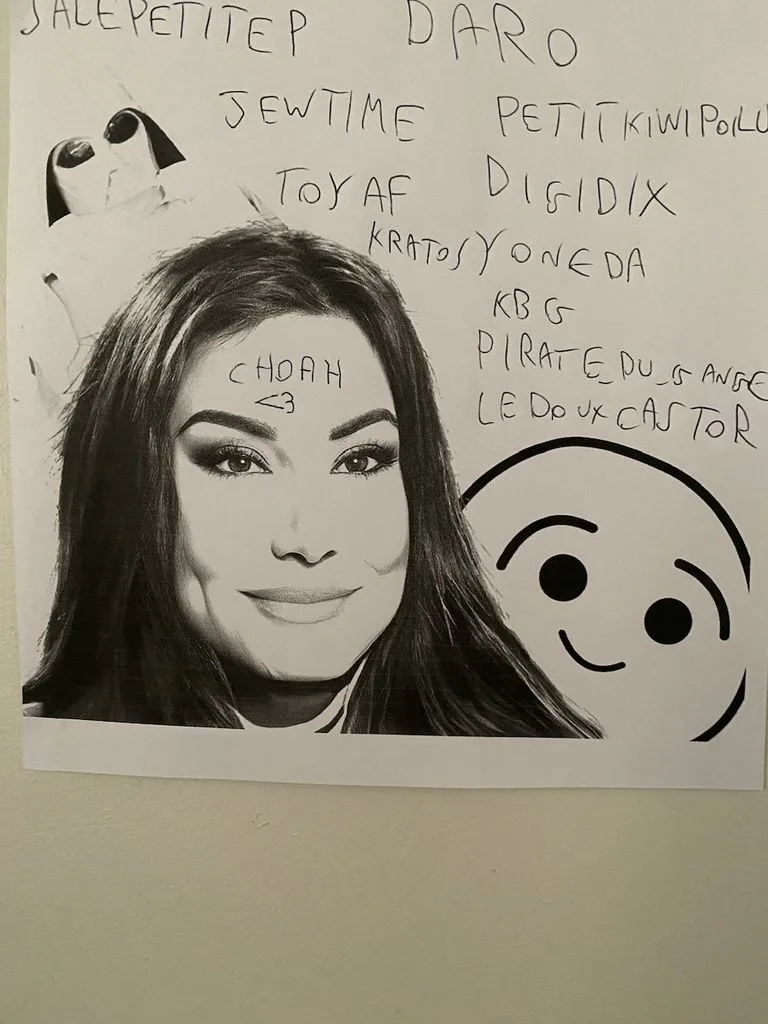 SALEPETITEP DARO
JEWTIME PETITKIWIPOILU
TOYAF DIGIDIX
KRATOS YONEDA
KBG
PIRATE_DU_GANGE
LEDOUXCASTOR
CHOAH
<3